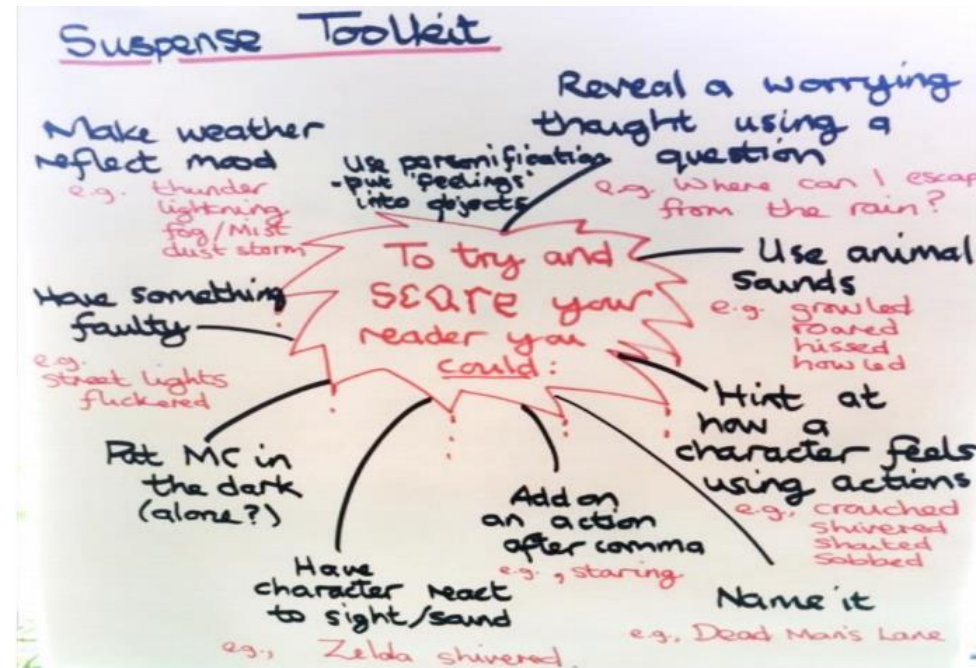 Suspense Toolkit
Make weather
reflect mood
e.g. thunder
lightning
fog/Mist
dust storm
use personification
-put 'feelings'
into objects
Reveal a worrying
thought using a
question
e.g. Where can I escape
from the rain?
To try and
scare your
reader you
could:
Use animal
sounds
e.g. growled
roared
hissed
howled
Have something
faulty
e.g.
street lights
flickered
Hint at
how a
character feels
using actions
e.g., crouched
shivered
shouted
sobbed
Put MC in
the dark
(alone?)
Add on
an action
after comma
e.g. , staring
Have
character react
to sight/sound
e.g., Zelda shivered.
Name it
e.g., Dead Man's Lane